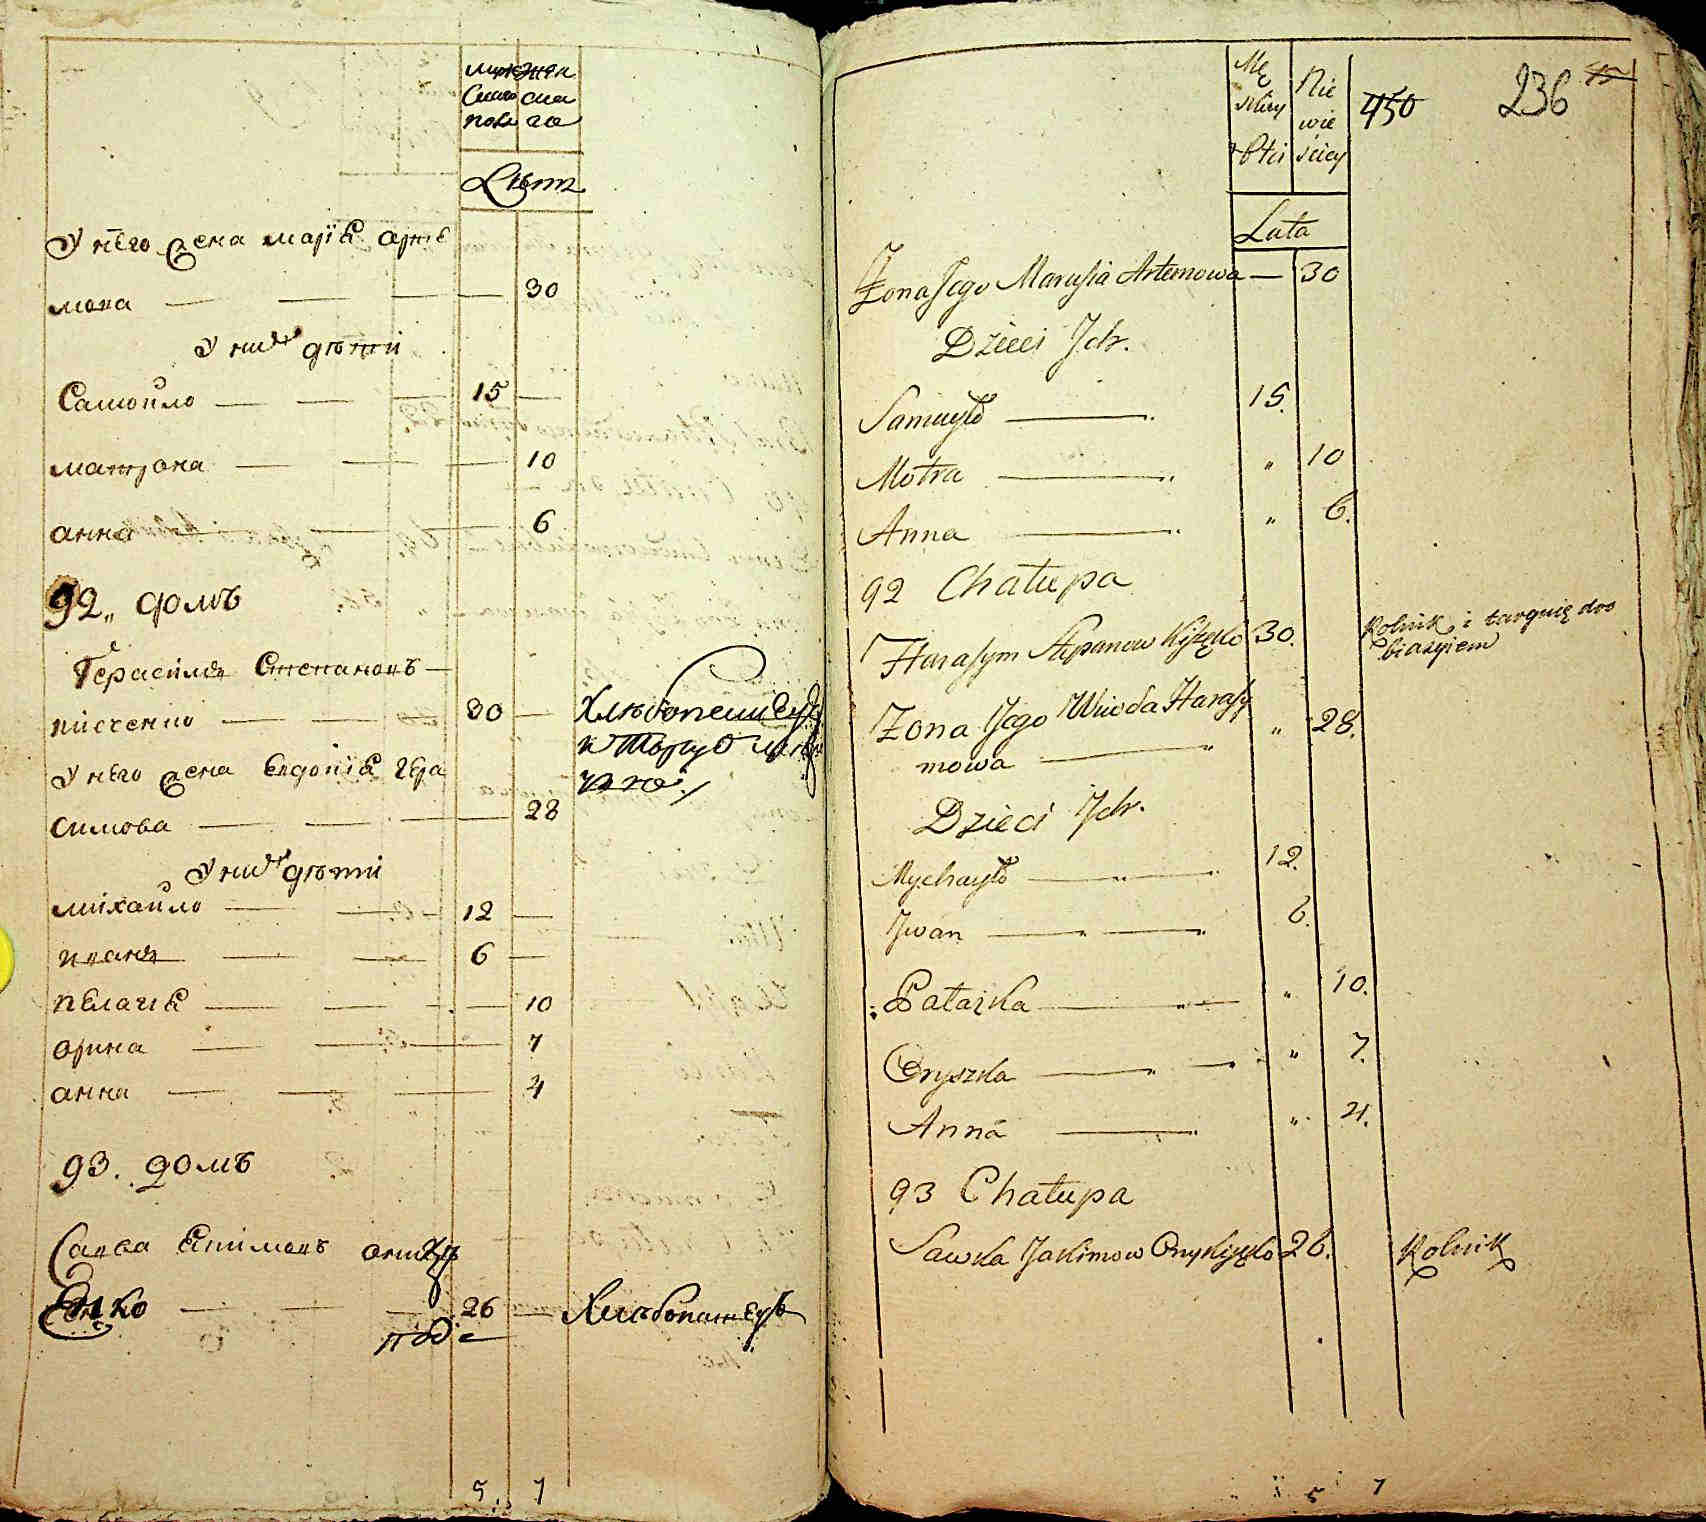 мужеска
женска
пола
го
Лѣтъ
У него жена марія арте
мова — — — — 30
У нихъ дѣти
Самойло — — — 15 —
матрона — — — 10
анна — — — 6
92„ домъ
Герасимъ Степановъ —
— — 30 — Хлѣбопашецъ
и торгуетъ
У него жена Евдокія Гера
симова — — — — 28
У нихъ дѣти
михайло — — 12 —
иванъ — — 6 —
пелагія — — — 10
орина — — — 7
анна — — — 4
93. домъ
Савва Якимовъ
енко — — — 26 — Хлѣбопашецъ
5 7
Mę
skiey
Płci
Nie
wie
ściey
450
236
Lata
Żona Jego Marusia Artemowa — 30
Dzieci Ich.
Samuyło — 15.
Motra — " 10
Anna — " 6.
92 Chałupa
Harasym Stepanow 30. Rolnik i targuię dro
biazgiem
Żona Jego Harasy
mowa — " 28.
Dzieci Ich.
Mychayło — 12.
Iwan — 6.
Pałaszka — " 10.
Oryszka — " 7.
Anna — " 4.
93 Chałupa
Sawka Jakimow 26. Rolnik
5 7